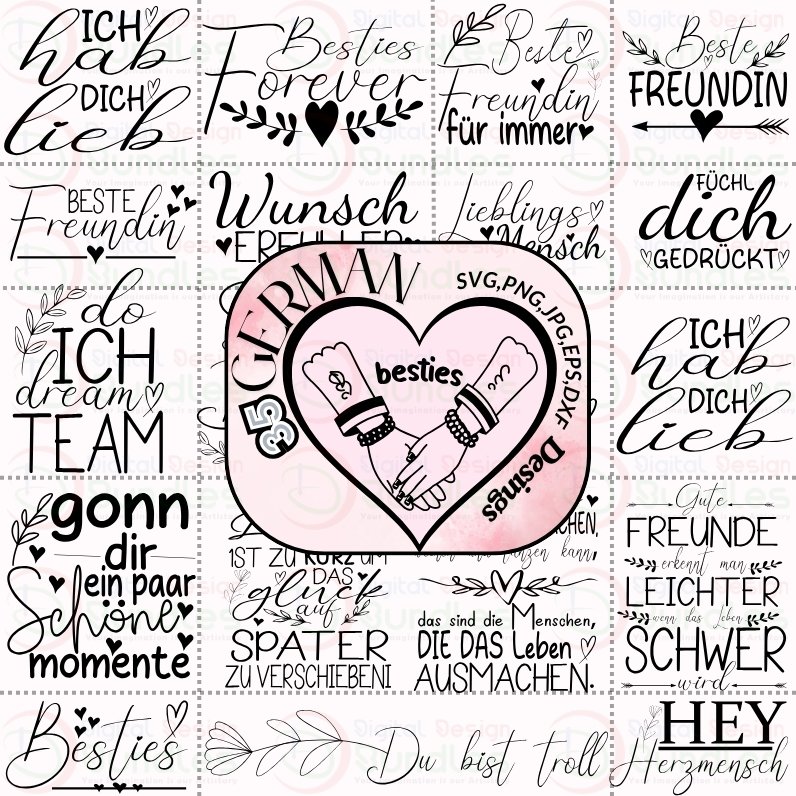 ICH
hab
DICH
lieb
Besties
Forever
Beste
Freundin
für immer
Beste
FREUNDIN
BESTE
Freundin
Wunsch
ERFÜLLER
Lieblings
Mensch
FÜCHL
dich
GEDRÜCKT
do
ICH
dream
TEAM
GERMAN
SVG,PNG,JPG,EPS,DXF
35
besties
Desings
ICH
hab
DICH
lieb
gonn
dir
ein paar
Schöne
momente
IST ZU KURZ UM
DAS
glück
auf
SPÄTER
ZU VERSCHIEBEN!
tanzen kann.
das sind die Menschen,
DIE DAS Leben
AUSMACHEN.
Gute
FREUNDE
erkennt man
LEICHTER
wenn das Leben
SCHWER
wird
Besties
Du bist troll
HEY
Herzmensch
Digital Design
Bundles
Your Imagination is our Artistery